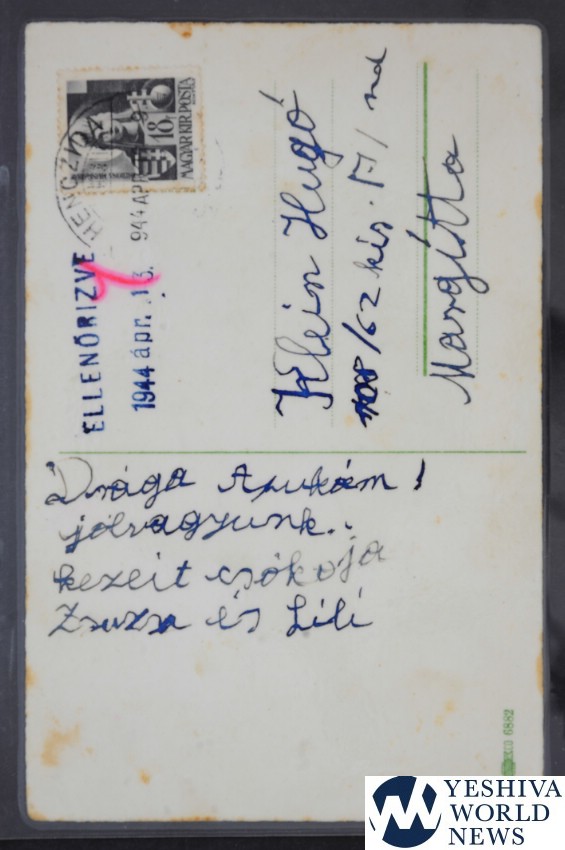 MAGYAR KIR. POSTA
18
HENCZIDA
944 APR
ELLENŐRIZVE
1944 ápr. 13.
Klein Hugó
/62 kis.
Margitta
Drága Apukám!
jólvagyunk..
kezeit csókolja
Zsuzsa és Lili
6882
YESHIVA
WORLD
NEWS